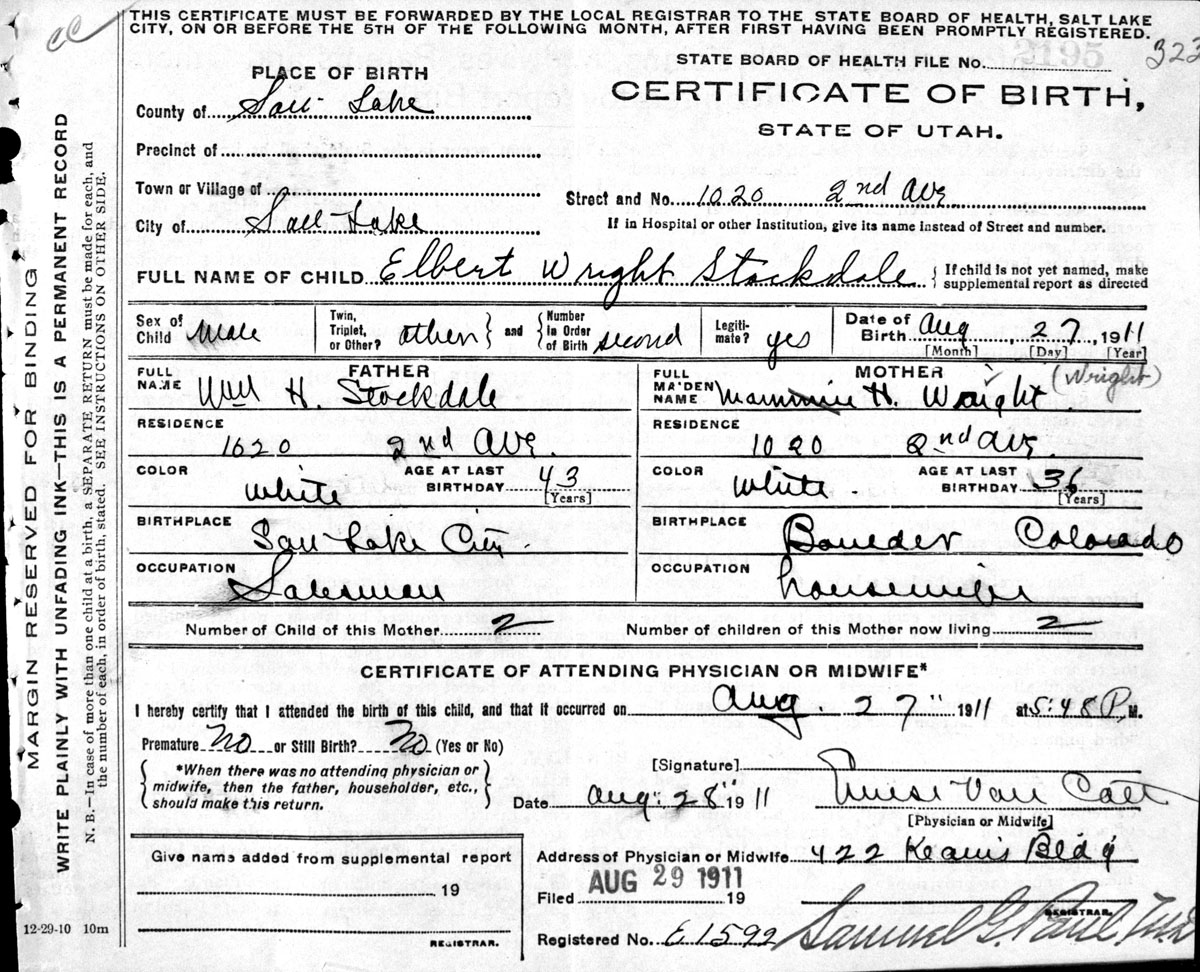 THIS CERTIFICATE MUST BE FORWARDED BY THE LOCAL REGISTRAR TO THE STATE BOARD OF HEALTH, SALT LAKE
CITY, ON OR BEFORE THE 5TH OF THE FOLLOWING MONTH, AFTER FIRST HAVING BEEN PROMPTLY REGISTERED.
STATE BOARD OF HEALTH FILE No.
PLACE OF BIRTH
CERTIFICATE OF BIRTH,
STATE OF UTAH.
County of Salt Lake
Precinct of
Town or Village of
Street and No. 1020 2nd Ave
City of Salt Lake
If in Hospital or other Institution, give its name instead of Street and number.
FULL NAME OF CHILD Elbert Wright Stockdale { If child is not yet named, make supplemental report as directed
Sex of Child Male Twin, Triplet, or Other? other } and { Number in Order of Birth second Legitimate? yes Date of Birth Aug, 27, 1911
[Month] [Day] [Year]
FATHER MOTHER (Wright)
FULL NAME Will H. Stockdale FULL MAIDEN NAME H. Wright
RESIDENCE 1020 2nd Ave RESIDENCE 1020 2nd Ave
COLOR white AGE AT LAST BIRTHDAY 43 [Years] COLOR white AGE AT LAST BIRTHDAY 36 [Years]
BIRTHPLACE Salt Lake City BIRTHPLACE Boulder Colorado
OCCUPATION Salesman OCCUPATION housewife
Number of Child of this Mother 2 Number of children of this Mother now living 2
CERTIFICATE OF ATTENDING PHYSICIAN OR MIDWIFE*
I hereby certify that I attended the birth of this child, and that it occurred on Aug. 27" 1911 at 5:48 P. M.
Premature No or Still Birth? No (Yes or No)
{ *When there was no attending physician or midwife, then the father, householder, etc., should make this return. }
[Signature] Van Cott
Date Aug. 28" 1911
[Physician or Midwife]
Give name added from supplemental report
19
REGISTRAR.
Address of Physician or Midwife 422 Kearns Bldg
Filed AUG 29 1911 19
REGISTRAR.
Registered No. E1592 Samuel G. Paul
MARGIN RESERVED FOR BINDING
WRITE PLAINLY WITH UNFADING INK—THIS IS A PERMANENT RECORD
N. B.—In case of more than one child at a birth, a SEPARATE RETURN must be made for each, and
the number of each, in order of birth, stated. SEE INSTRUCTIONS ON OTHER SIDE.
12-29-10 10m